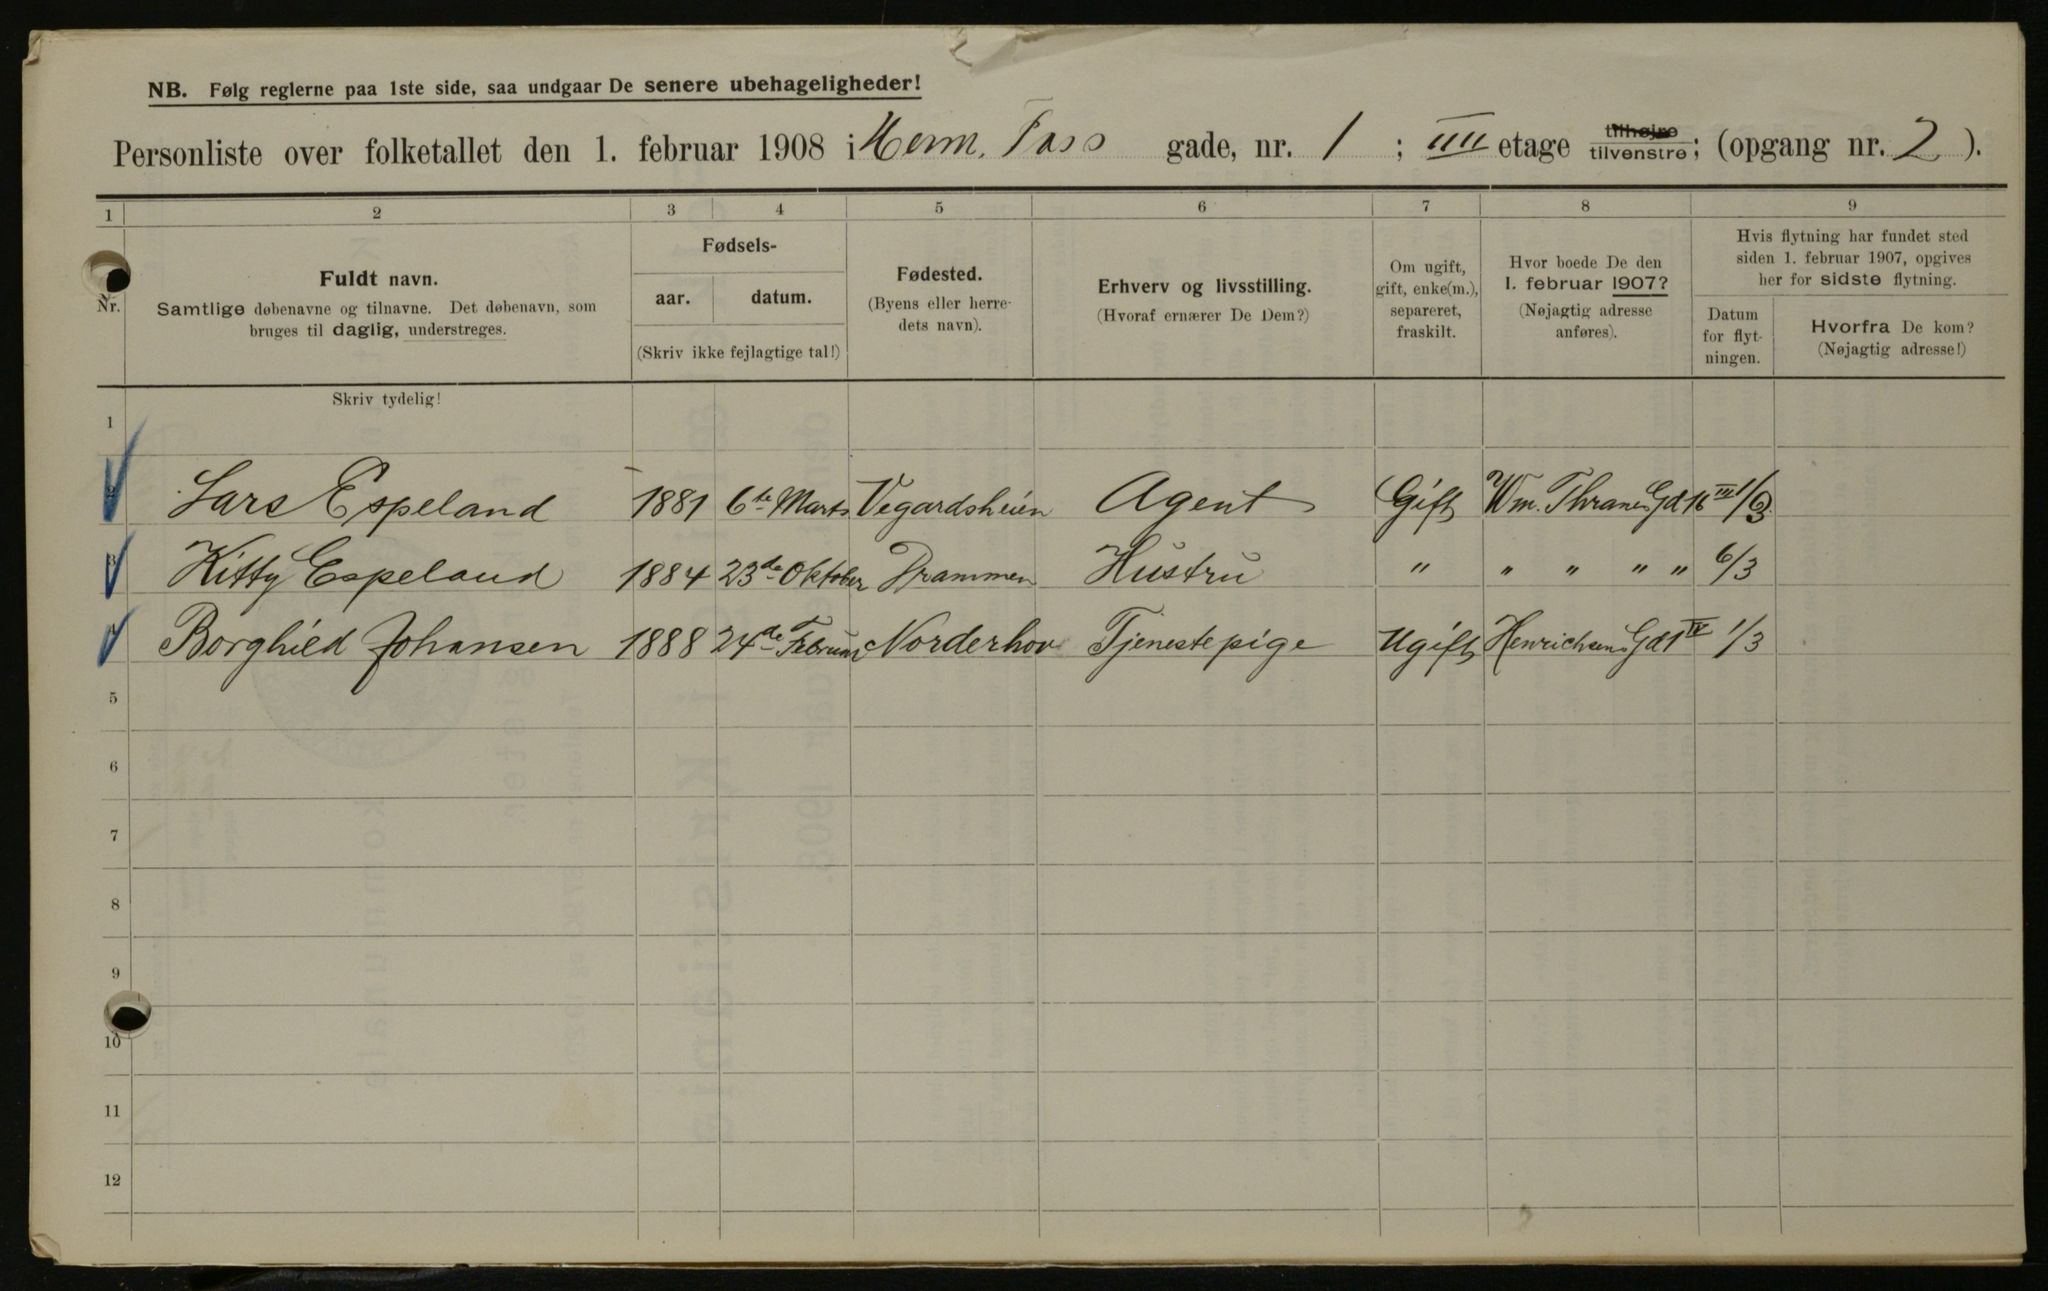 NB. Følg reglerne paa 1ste side, saa undgaar De senere ubehageligheder!
Personliste over folketallet den 1. februar 1908 i Herm. Foss gade, nr. 1 ; IIII etage tilhøjre tilvenstre; (opgang nr. 2 ).
1 2 3 4 5 6 7 8 9
Nr.
Fuldt navn.
Samtlige døbenavne og tilnavne. Det døbenavn, som
bruges til daglig, understreges.
Fødsels-
aar. datum.
(Skriv ikke fejlagtige tal!)
Fødested.
(Byens eller herre-
dets navn).
Erhverv og livsstilling.
(Hvoraf ernærer De Dem?)
Om ugift,
gift, enke(m.),
separeret,
fraskilt.
Hvor boede De den
1. februar 1907?
(Nøjagtig adresse
anføres).
Hvis flytning har fundet sted
siden 1. februar 1907, opgives
her for sidste flytning.
Datum
for flyt-
ningen.
Hvorfra De kom?
(Nøjagtig adresse!)
Skriv tydelig!
1
2 Lars Espeland 1881 6te Marts Vegardsheien Agent Gift Wm. Thranes Gd 16 III 1/3
3 Kitty Espeland 1884 23de Oktober Drammen Hustru " " " " " 6/3
4 Borghild Johansen 1888 24de Februar Norderhov Tjenestepige Ugift Henrichsens Gd 1 IV 1/3
5
6
7
8
9
10
11
12